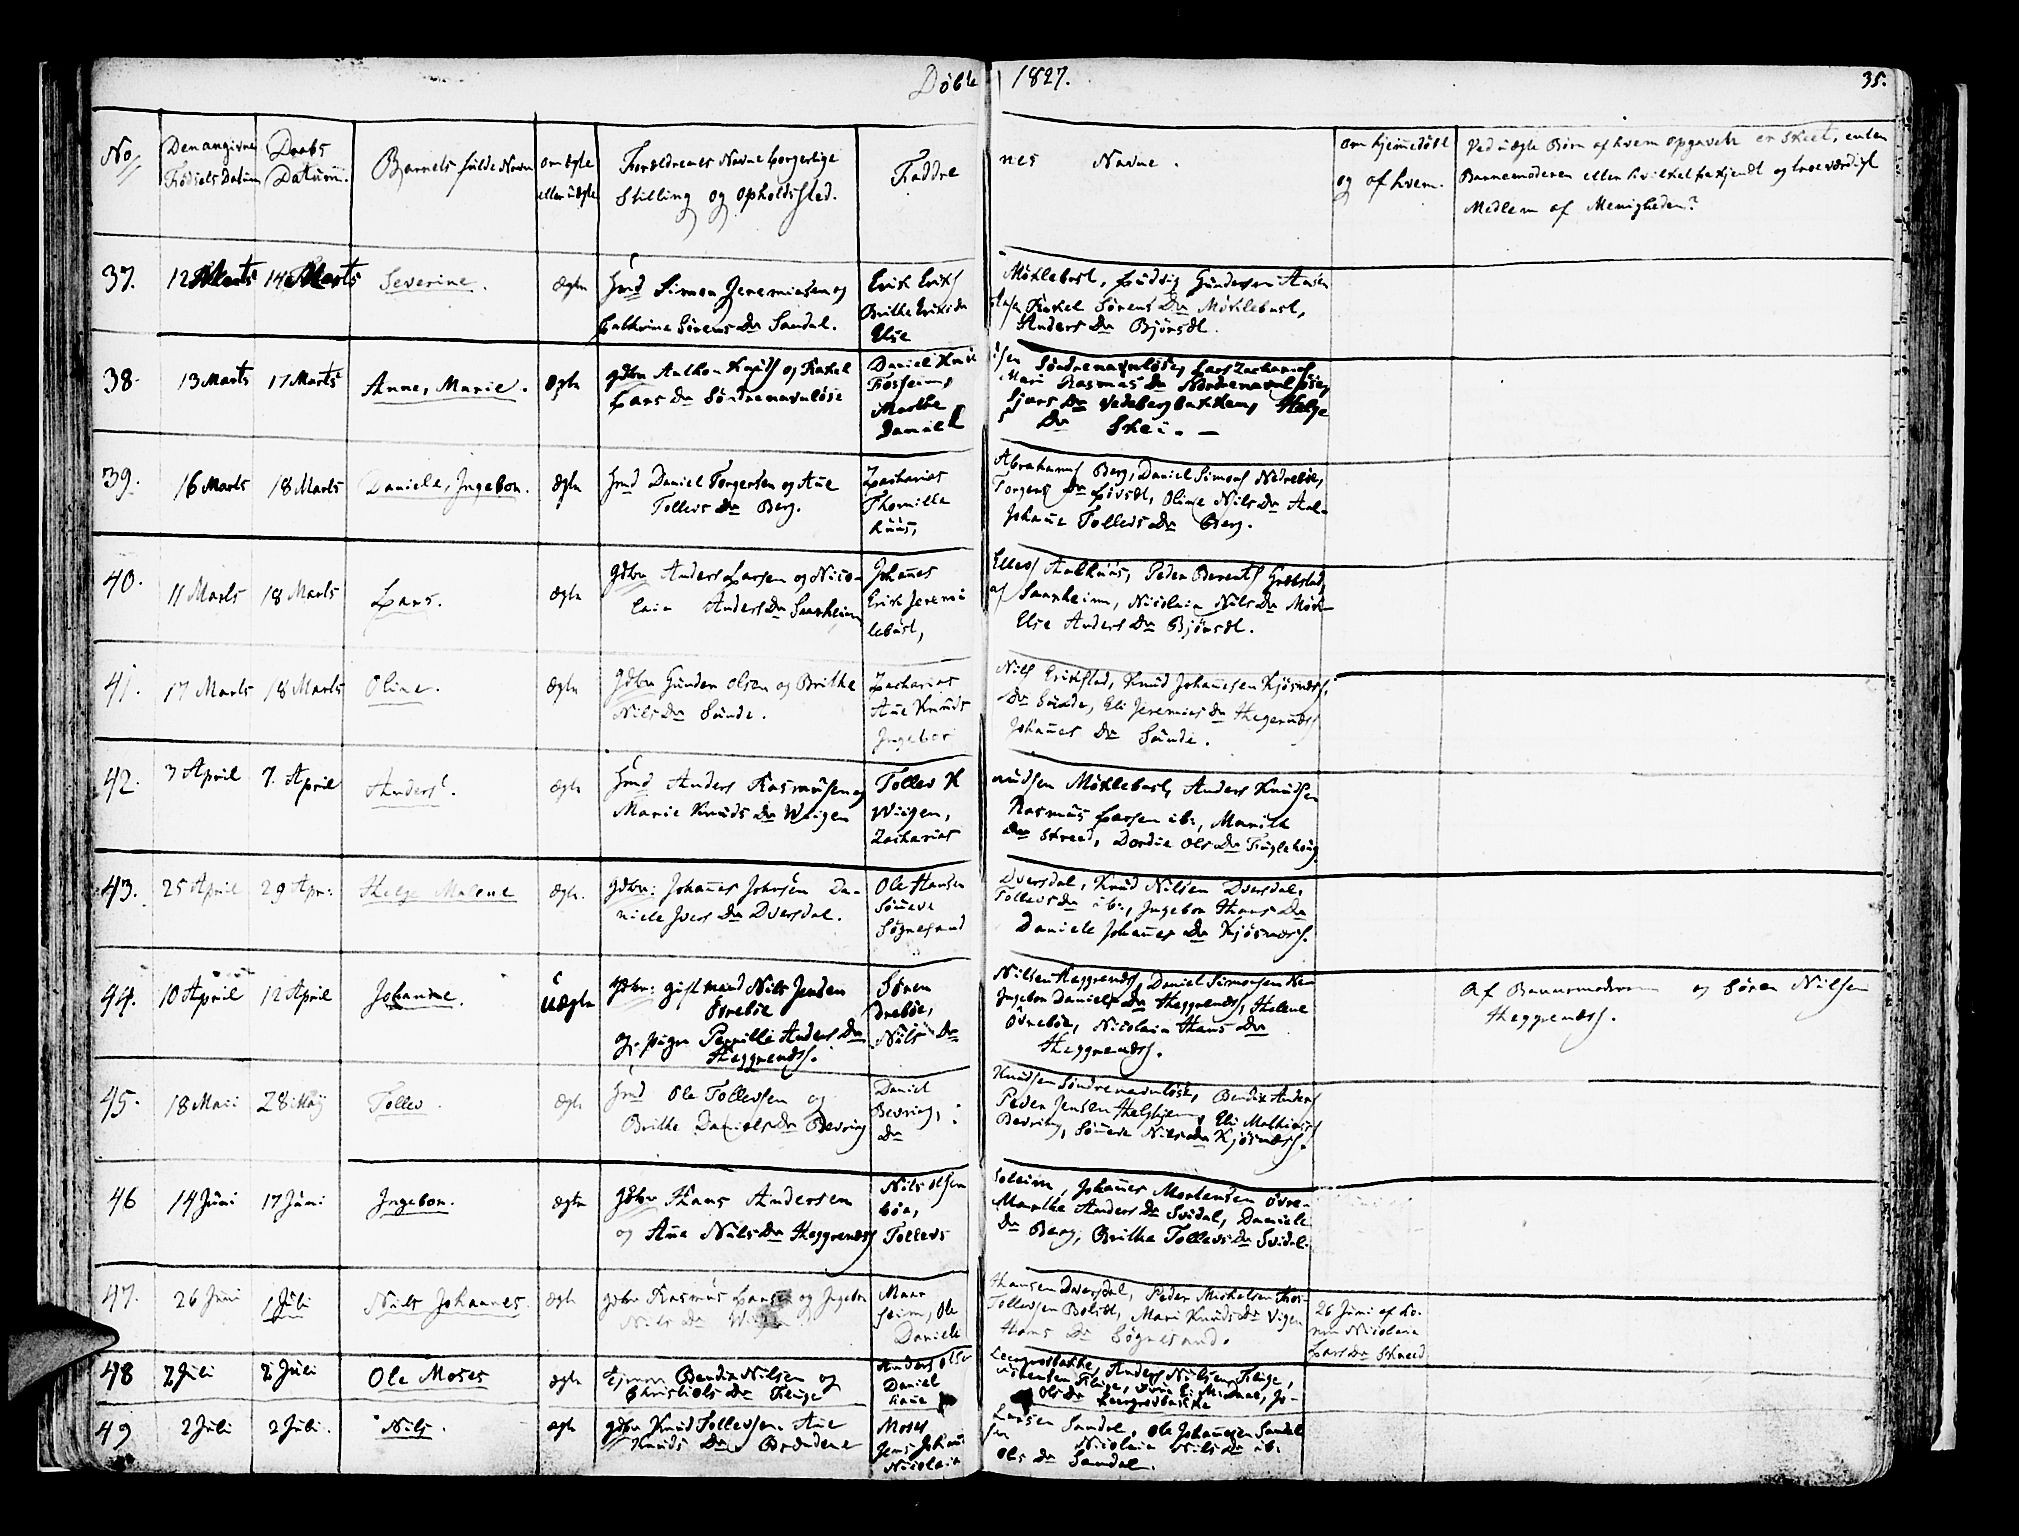 Döbte 1827. 35.
No
Den angivne Fødsels Datum
Daabs Datum.
Barnets fulde Navn
om ægte eller uægte
Forældrenes Navne borgerlige Stilling og opholdssted.
Faddrenes Navne.
om hjemmedöbt og af hvem.
Ved uægte Börn af hvem opgavet er skeet, enten
Barnemoderen eller hvilket bekjendt og troeværdigt
Medlem af Menigheden?
37. 12 Marts 14 Marts Severine. ægte
Hmd Simon Jeremiasen og
Cathrine Sörens Dr Sandal.
Erich Erichs Möklebust, Ludvig Gundersen
Brithe Erichs Dr Rakel Sörens Dr Möklebust,
Else Anders Dr Björsdt.
38. 13 Marts 17 Marts Anne, Marie. ægte
gdbr Anthon Knuds og Rakel
Lars Dr Söndrenavnløse
Daniel Söndrenavnløse, Lars Zacharias
Fosheim, Mari Rasmus Dr Nordrenavnløse,
Marthe Dr Vedebergbakken, Helge
Daniels Dr Skei. -
39. 16 Marts 18 Marts Daniele, Ingebor. ægte
Hmd Daniel Torgersen og Ane
Tollevs Dr Berg.
Zacharias Abrahams Berg, Daniel Simons Nedreböe,
Thomille Torgers Dr Livsdt, Oline Nils Dr Aal-
huus, Johane Tollevs Dr Berg.
40. 11 Marts 18 Marts Lars. ægte
gdbr Anders Larsen og Nico-
laia Anders Dr Saanheim
Johanes Ellevs Aalhuus, Peder Berents
Erich Jeremi af Saanheim, Nicolaia Nils Dr Mök-
lebust, Else Anders Dr Björsdt.
41. 17 Marts 18 Marts Oline. ægte
gdbr Gunder Olsen og Brithe
Nils Dr Sunde.
Zacharias Nils Erikstad, Knud Johanesen Kjösnæs,
Ane Knuds Dr Sunde, Eli Jeremies Dr Hegrenæs
Ingebor Johanes Dr Sunde.
42. 3 April 7. April Anders. ægte
Hmd Anders Rasmusen og
Marie Knuds Dr Wiigen
Tollev Knudsen Möklebust, Anders Knudsen
Wiigen, Rasmus Larsen ib:, Marith
Zacharias Dr Skreed, Dordie Ols Dr Fuglehoug
43. 25 April 29 Apr: Helge Malene ægte.
gdbr: Johanes Johnsen Da-
niele Ivers Dr Dversdal.
Ole Hansen Dversdal, Knud Nilsen Dversdal,
Söneve Tollevs Dr ib:, Ingebor Hans Dr
Sögnesand Daniele Johanes Dr Kjösnæs.
44. 10 April 12 April Johanne. uægte
gdbr: gift mand Nils Jensen
Övreböe
og pige Pernille Anders Dr
Heggrenæs.
Sören Nilsen Heggrenæs, Daniel Simonsen Ne-
dreböe, Ingebor Daniels Dr Heggrenæs, Helene
Nils Dr Övreböe, Nicolaia Hans Dr
Heggrenæs.
Af Barnemoderen og Sören Nilsen
Heggrenæs.
45. 18 Maii 28 Maij Tollev. ægte
Hmd Ole Tollevsen og
Brithe Daniels Dr Bevring
Daniel Knudsen Söndrenavnløse, Bendix Anders
Bevring, Peder Jensen Helgheim, Eli Mathias
Dr Bevring, Söneve Nils Dr Kjösnæs.
46 14 Juni 17 Juni Ingebor. ægte
gdbr Hans Andersen
og Ane Nils Dr Heggrenæs
Nils Olsen Soleim, Johanes Mortensen övre-
böe, Marthe Anders Dr Svidal, Daniele
Tollevs Dr Berg, Brithe Tollevs Dr Svidal.
47. 26 Juni 1 Juli Nils Johannes. ægte
gdbr Rasmus Larsen og Ingebor
Nils Dr Wigen
Hansen Dversdal, Peder Michelsen Aar-
seim, Ole Tollevsen Bolset, Mari Knuds Dr Vigen
Daniele Hans Dr Sögnesand.
26 Juni af Ko-
nen Nicolaia
Lars Dr Skreed
48 2 Juli 2 Juli Ole Moses ægte
Bendix Nilsen og
Christi Ols Dr Fluge
Anders Olsen Anders Nilsen Fluge,
Daniel
Ols Dr
49 2 Juli 2 Juli. Nils. ægte
gdbr Knud Tollevsen Ane
Knuds Dr Brændene
Moses Larsen Sandal, Ole Johannesen Sandal
Jens Nicolaia Nils Dr ib:
Nicolaia Ols Dr Sandal.